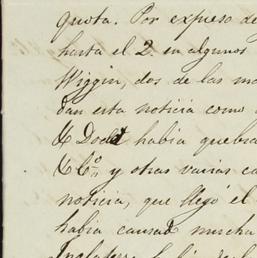 quota. Por expreso de
hasta el 2. en algunos
Wiggin, dos de las
dan esta noticia como
& Dodd habia
& Co. y otras varias
noticia, que llegó el
habia causad mucha